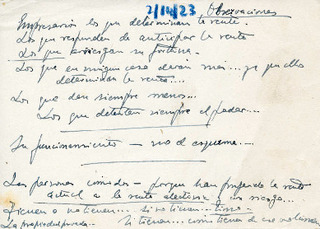 2/10/23 Observaciones
Empresarios los que determinan la renta.
Los que responden de anticipar la renta
Los que arriesgan su fortuna.
Los que en ningun caso darán mas... ya que ello
determinan la renta....
Los que dan siempre menos...
Los que detentan siempre el poder....
Su funcionamiento — no el esquema....
Las personas — porque han preferido la renta
actual a la renta
Tienen o no tienen... si no tienen...
La propiedad puede... Si tienen...